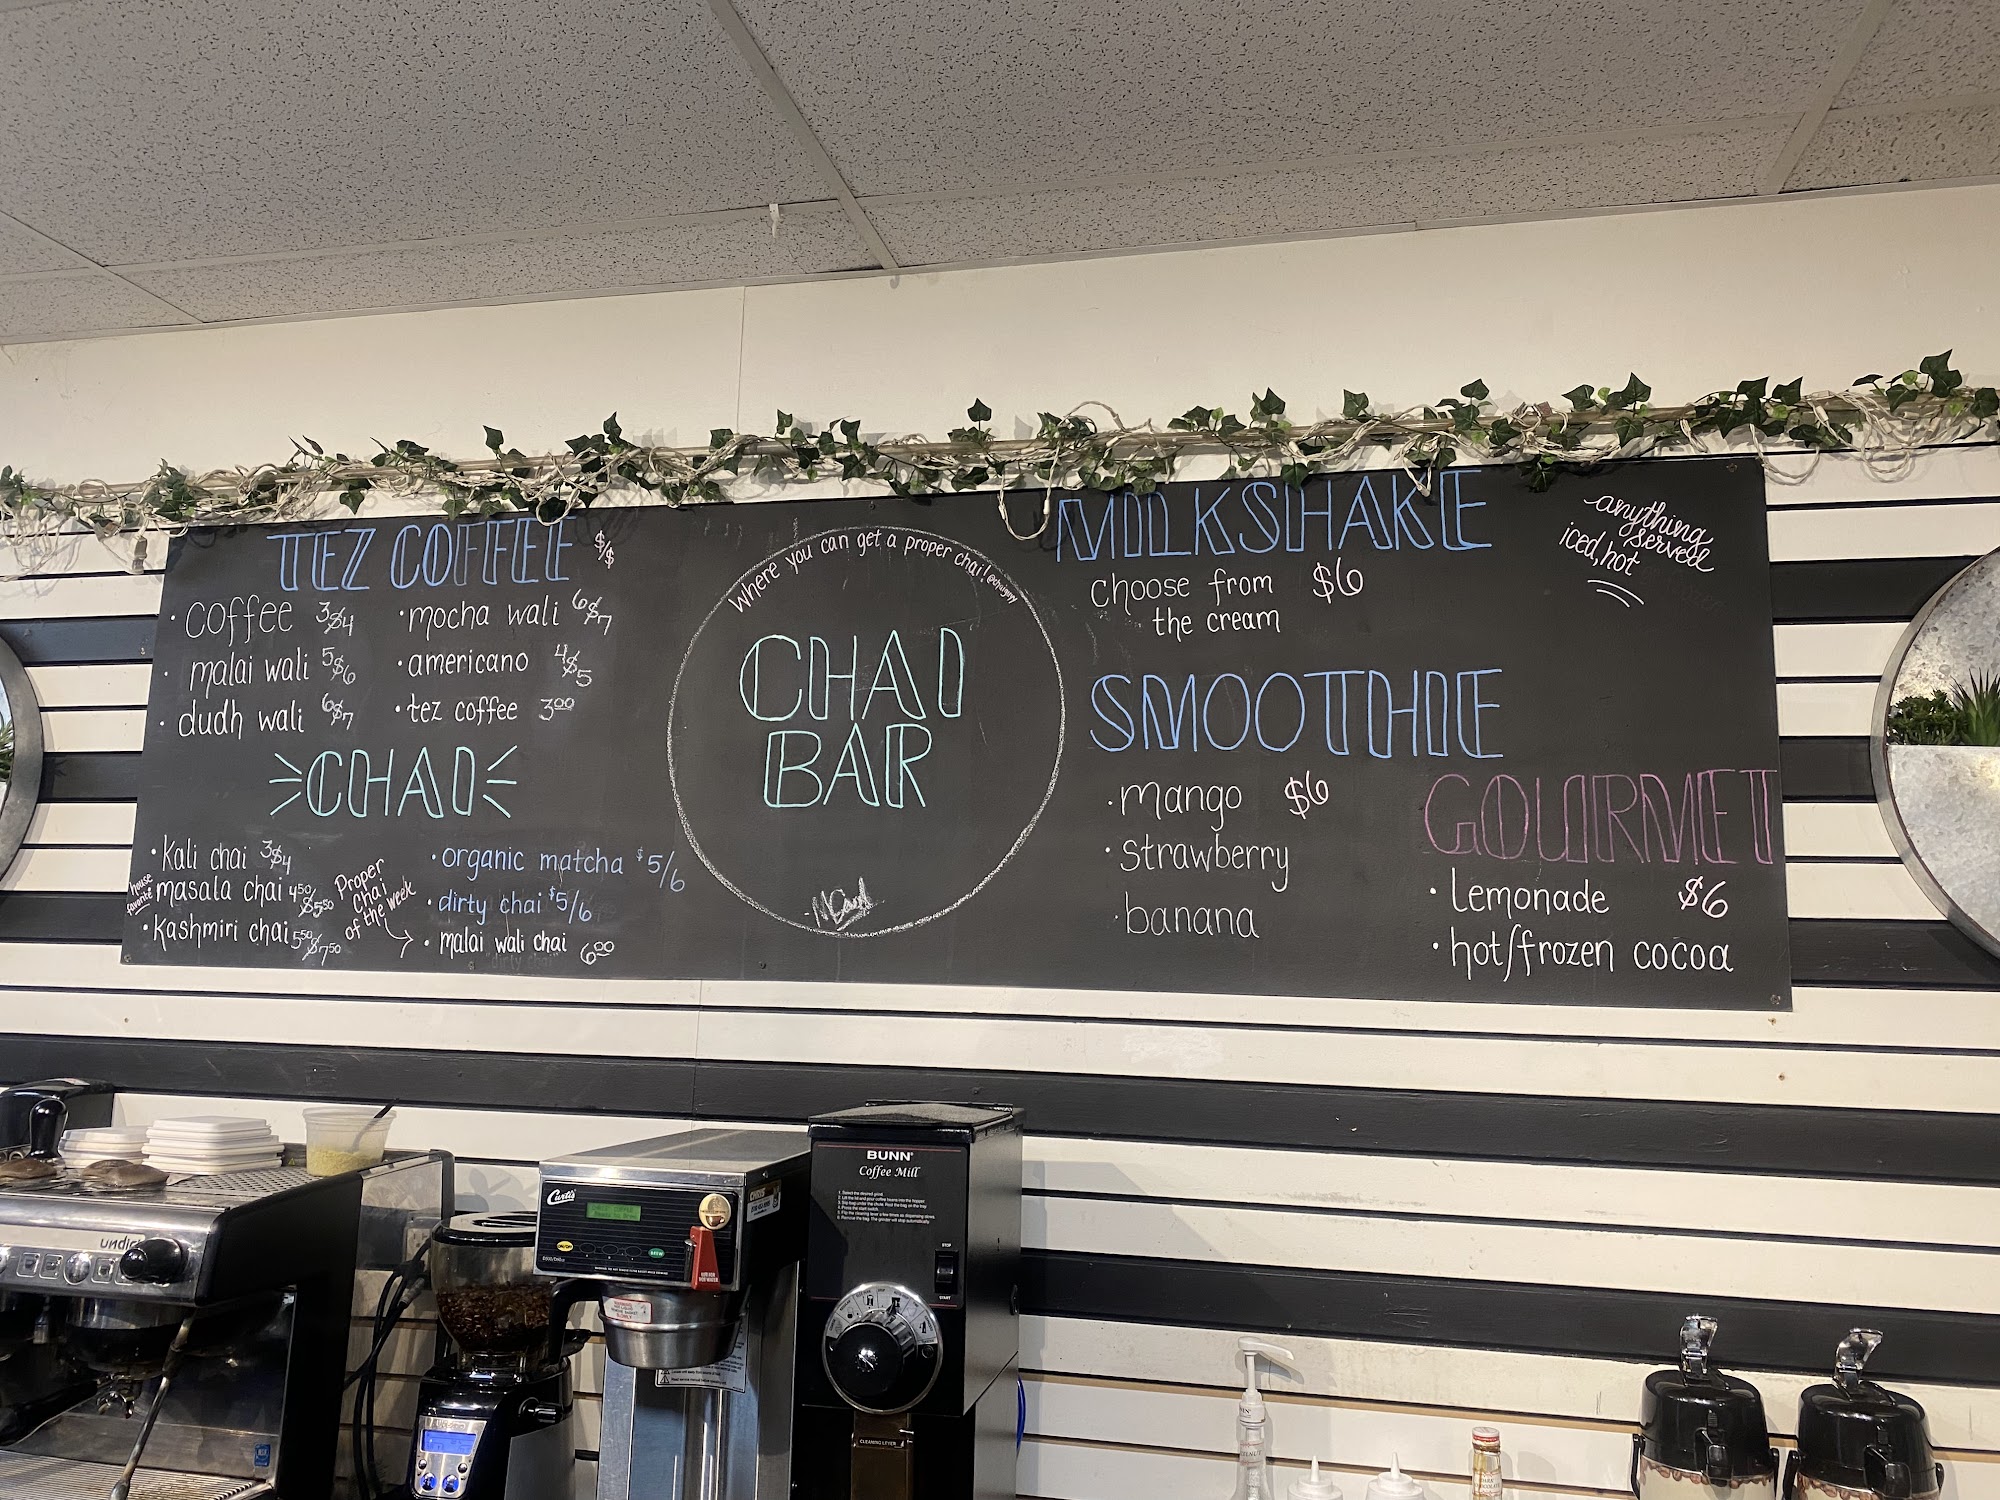 TEZ COFFEE $/$
• coffee 3$4
• malai wali 5$6
• dudh wali 6$7
• mocha wali 6$7
• americano 4$5
• tez coffee 3.00
CHAI
• Kali chai 3$4
house favorite
• masala chai 4.50/$5.50
• Kashmiri chai 5.50/$7.50
Proper
Chai
of the week
• organic matcha $5/6
• dirty chai $5/6
• malai wali chai 6.00
"dirty chai"
Where you can get a proper chai!
CHAI
BAR
MILKSHAKE
choose from $6
the cream
anything
served
iced, hot
SMOOTHIE
• mango $6
• strawberry
• banana
GOURMET
• Lemonade $6
• hot/frozen cocoa
Curtis
BREW
BUNN
Coffee Mill
STOP
START
CLEANING LEVER